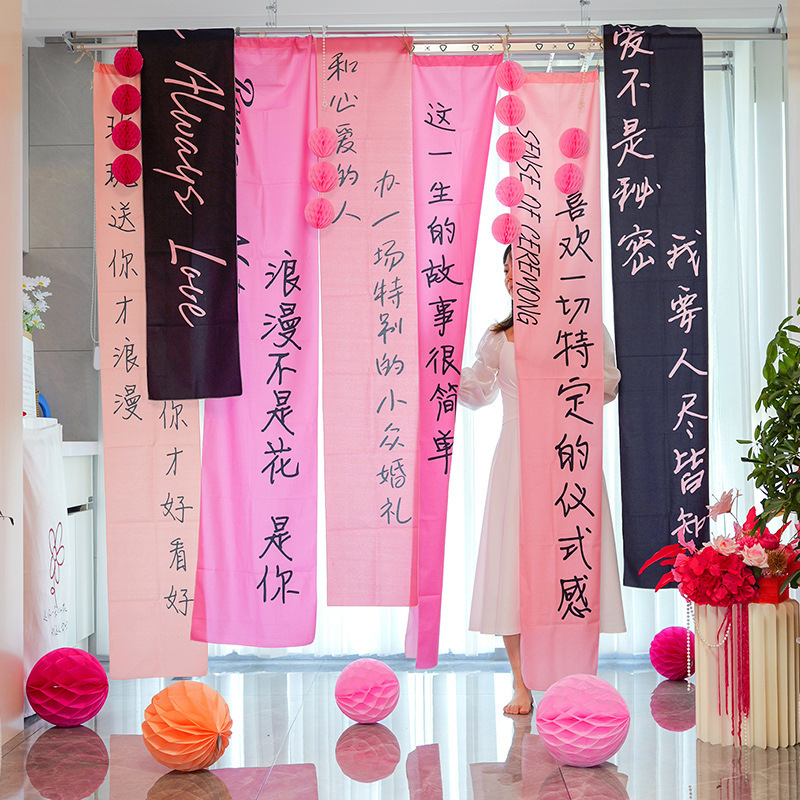 送你才浪漫
你才好看好
Always Love
浪漫不是花 是你
和心爱的人
办一场特别的小众婚礼
这一生的故事很简单
SENSE OF CEREMONG
喜欢一切特定的仪式感
爱不是秘密
我要人尽皆知